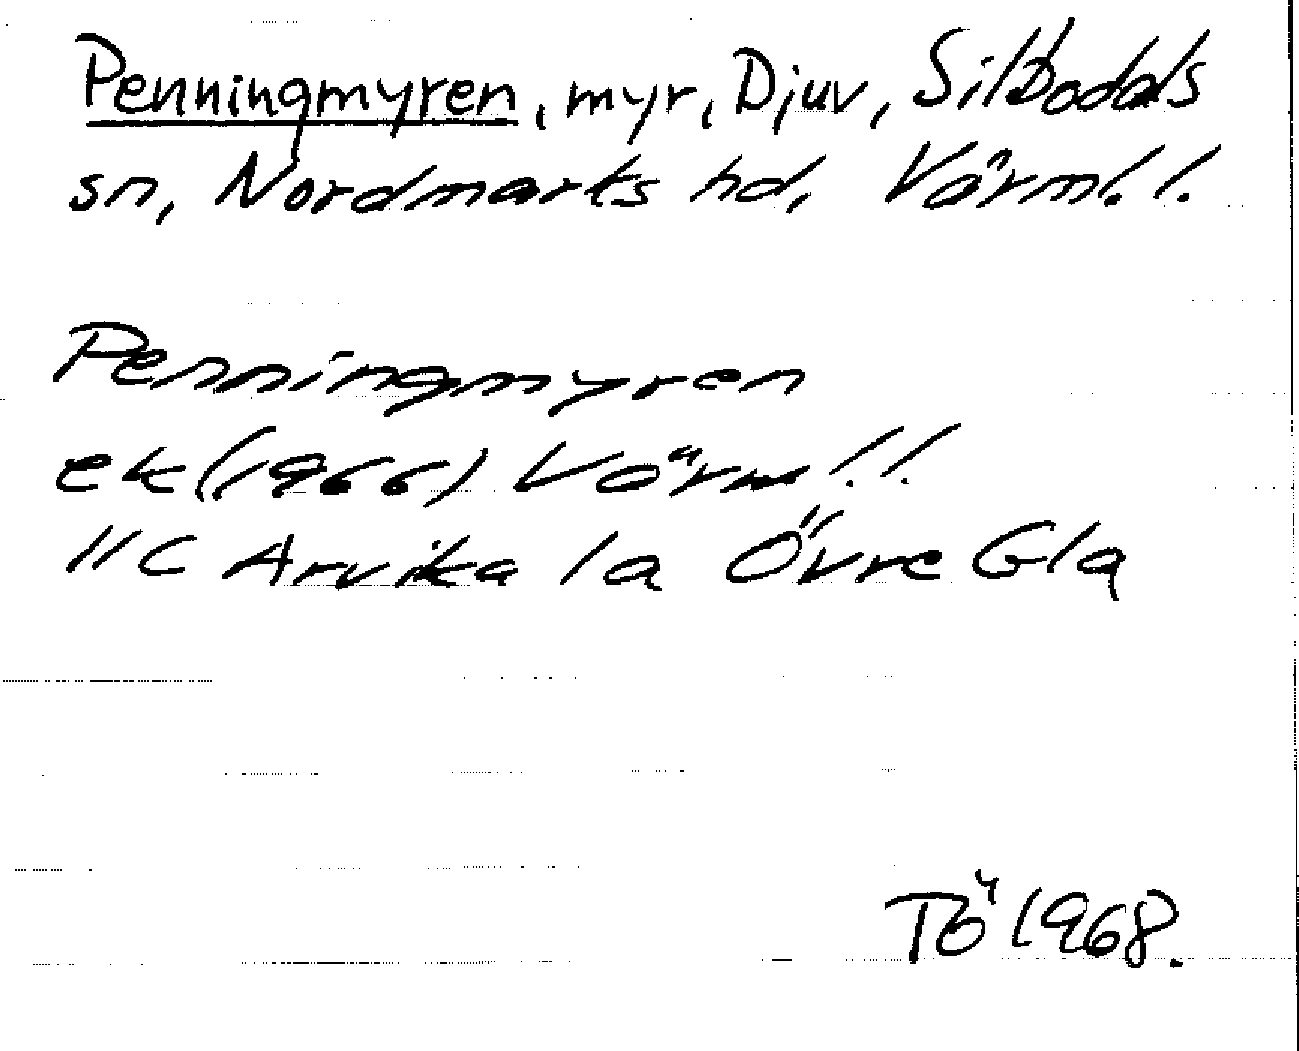 Penningmyren, myr, Djuv, Silbodals
sn, Nordmarks hd, Värml.
Penningmyren
ek (1966) Värml.
11C Arvika 1a Övre Gla
TÖ 1968.